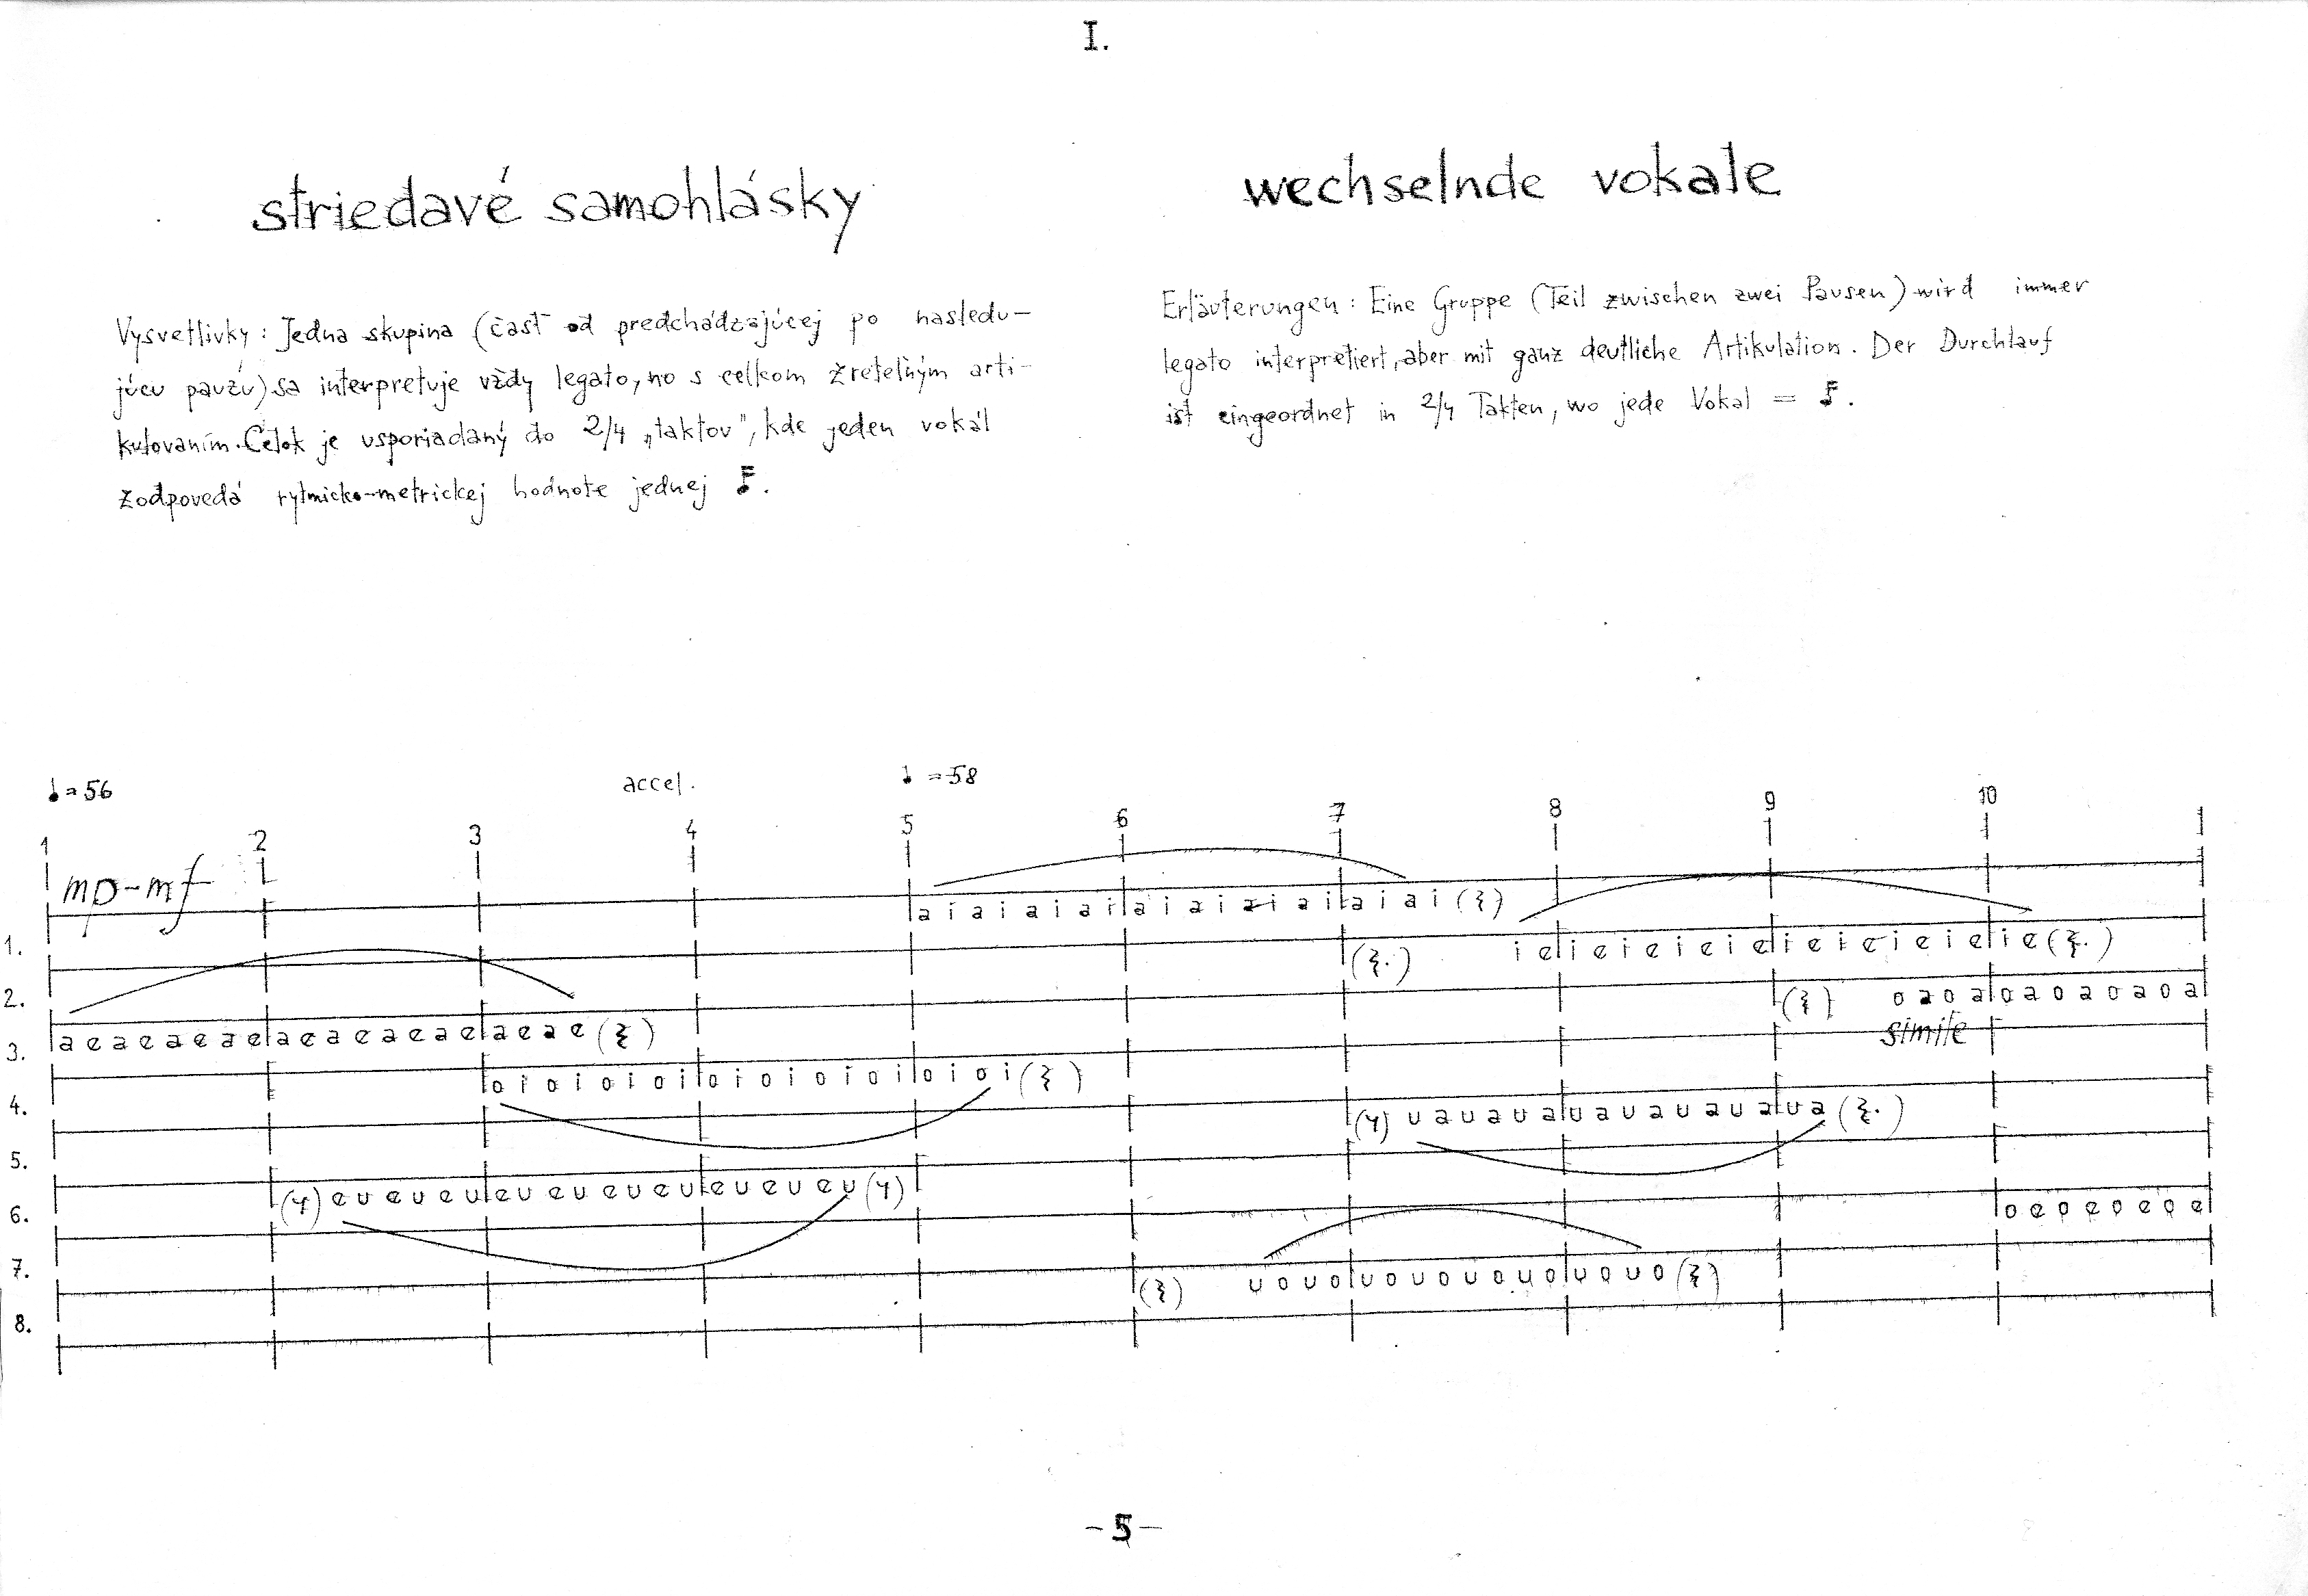 I.
striedavé samohlásky
wechselnde vokale
Vysvetlivky: Jedna skupina (časť od predchádzajúcej po nasledu-
júcu pauzu) sa interpretuje vždy legato, no s celkom zreteľným arti-
kulovaním. Celok je usporiadaný do 2/4 „taktov", kde jeden vokál
zodpovedá rytmicko-metrickej hodnote jednej
Erläuterungen: Eine Gruppe (Teil zwischen zwei Pausen) wird immer
legato interpretiert, aber mit ganz deutliche Artikulation. Der Durchlauf
ist eingeordnet in 2/4 Takten, wo jede Vokal =
♩=56 accel. ♩=58
1 2 3 4 5 6 7 8 9 10
mp-mf
1. a i a i a i a i a i a i a i a i a i a i
2. i e i e i e i e i e i e i e i e i e i e
3. a e a e a e a e a e a e a e a e a e a e o a o a o a o a o a o a
simile
4. o i o i o i o i o i o i o i o i o i o i
5. u a u a u a u a u a u a u a u a
6. e u e u e u e u e u e u e u e u e u e u o e o e o e o e
7. u o u o u o u o u o u o u o u o
8.
-5-